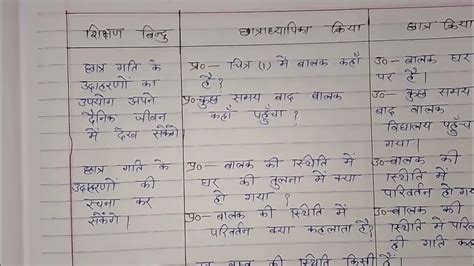 शिक्षण बिन्दु
छात्राध्यापिका क्रिया
छात्र क्रिया
छात्र गति के
उदाहरणों का
उपयोग अपने
दैनिक जीवन
में देख सकेंगे।
प्र०- चित्र (1) में बालक कहाँ
है?
प्र० कुछ समय बाद बालक
कहाँ पहुँचा ?
उ०- बालक घर
पर है।
उ०- कुछ समय
बाद बालक
विद्यालय पहुँच
गया।
छात्र गति के
उदाहरणों की
रचना कर
सकेंगे।
प्र०- बालक की स्थिति में
घर की तुलना में क्या
हो गया ?
प्र०- बालक की स्थिति में
परिवर्तन क्या कहलाता है?
उ०- बालक की
स्थिति में
परिवर्तन हो गया
उ०- बालक की
स्थिति में परि
ही गति कह
स्थिति किसी